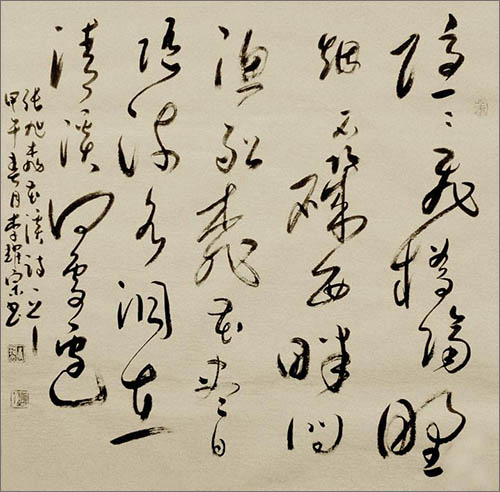 隱隱飛橋隔野
烟石磯西畔問
漁船桃花盡日
隨流水洞在
清溪何處邊
張旭桃花溪詩一首
甲午春月李耀宗书